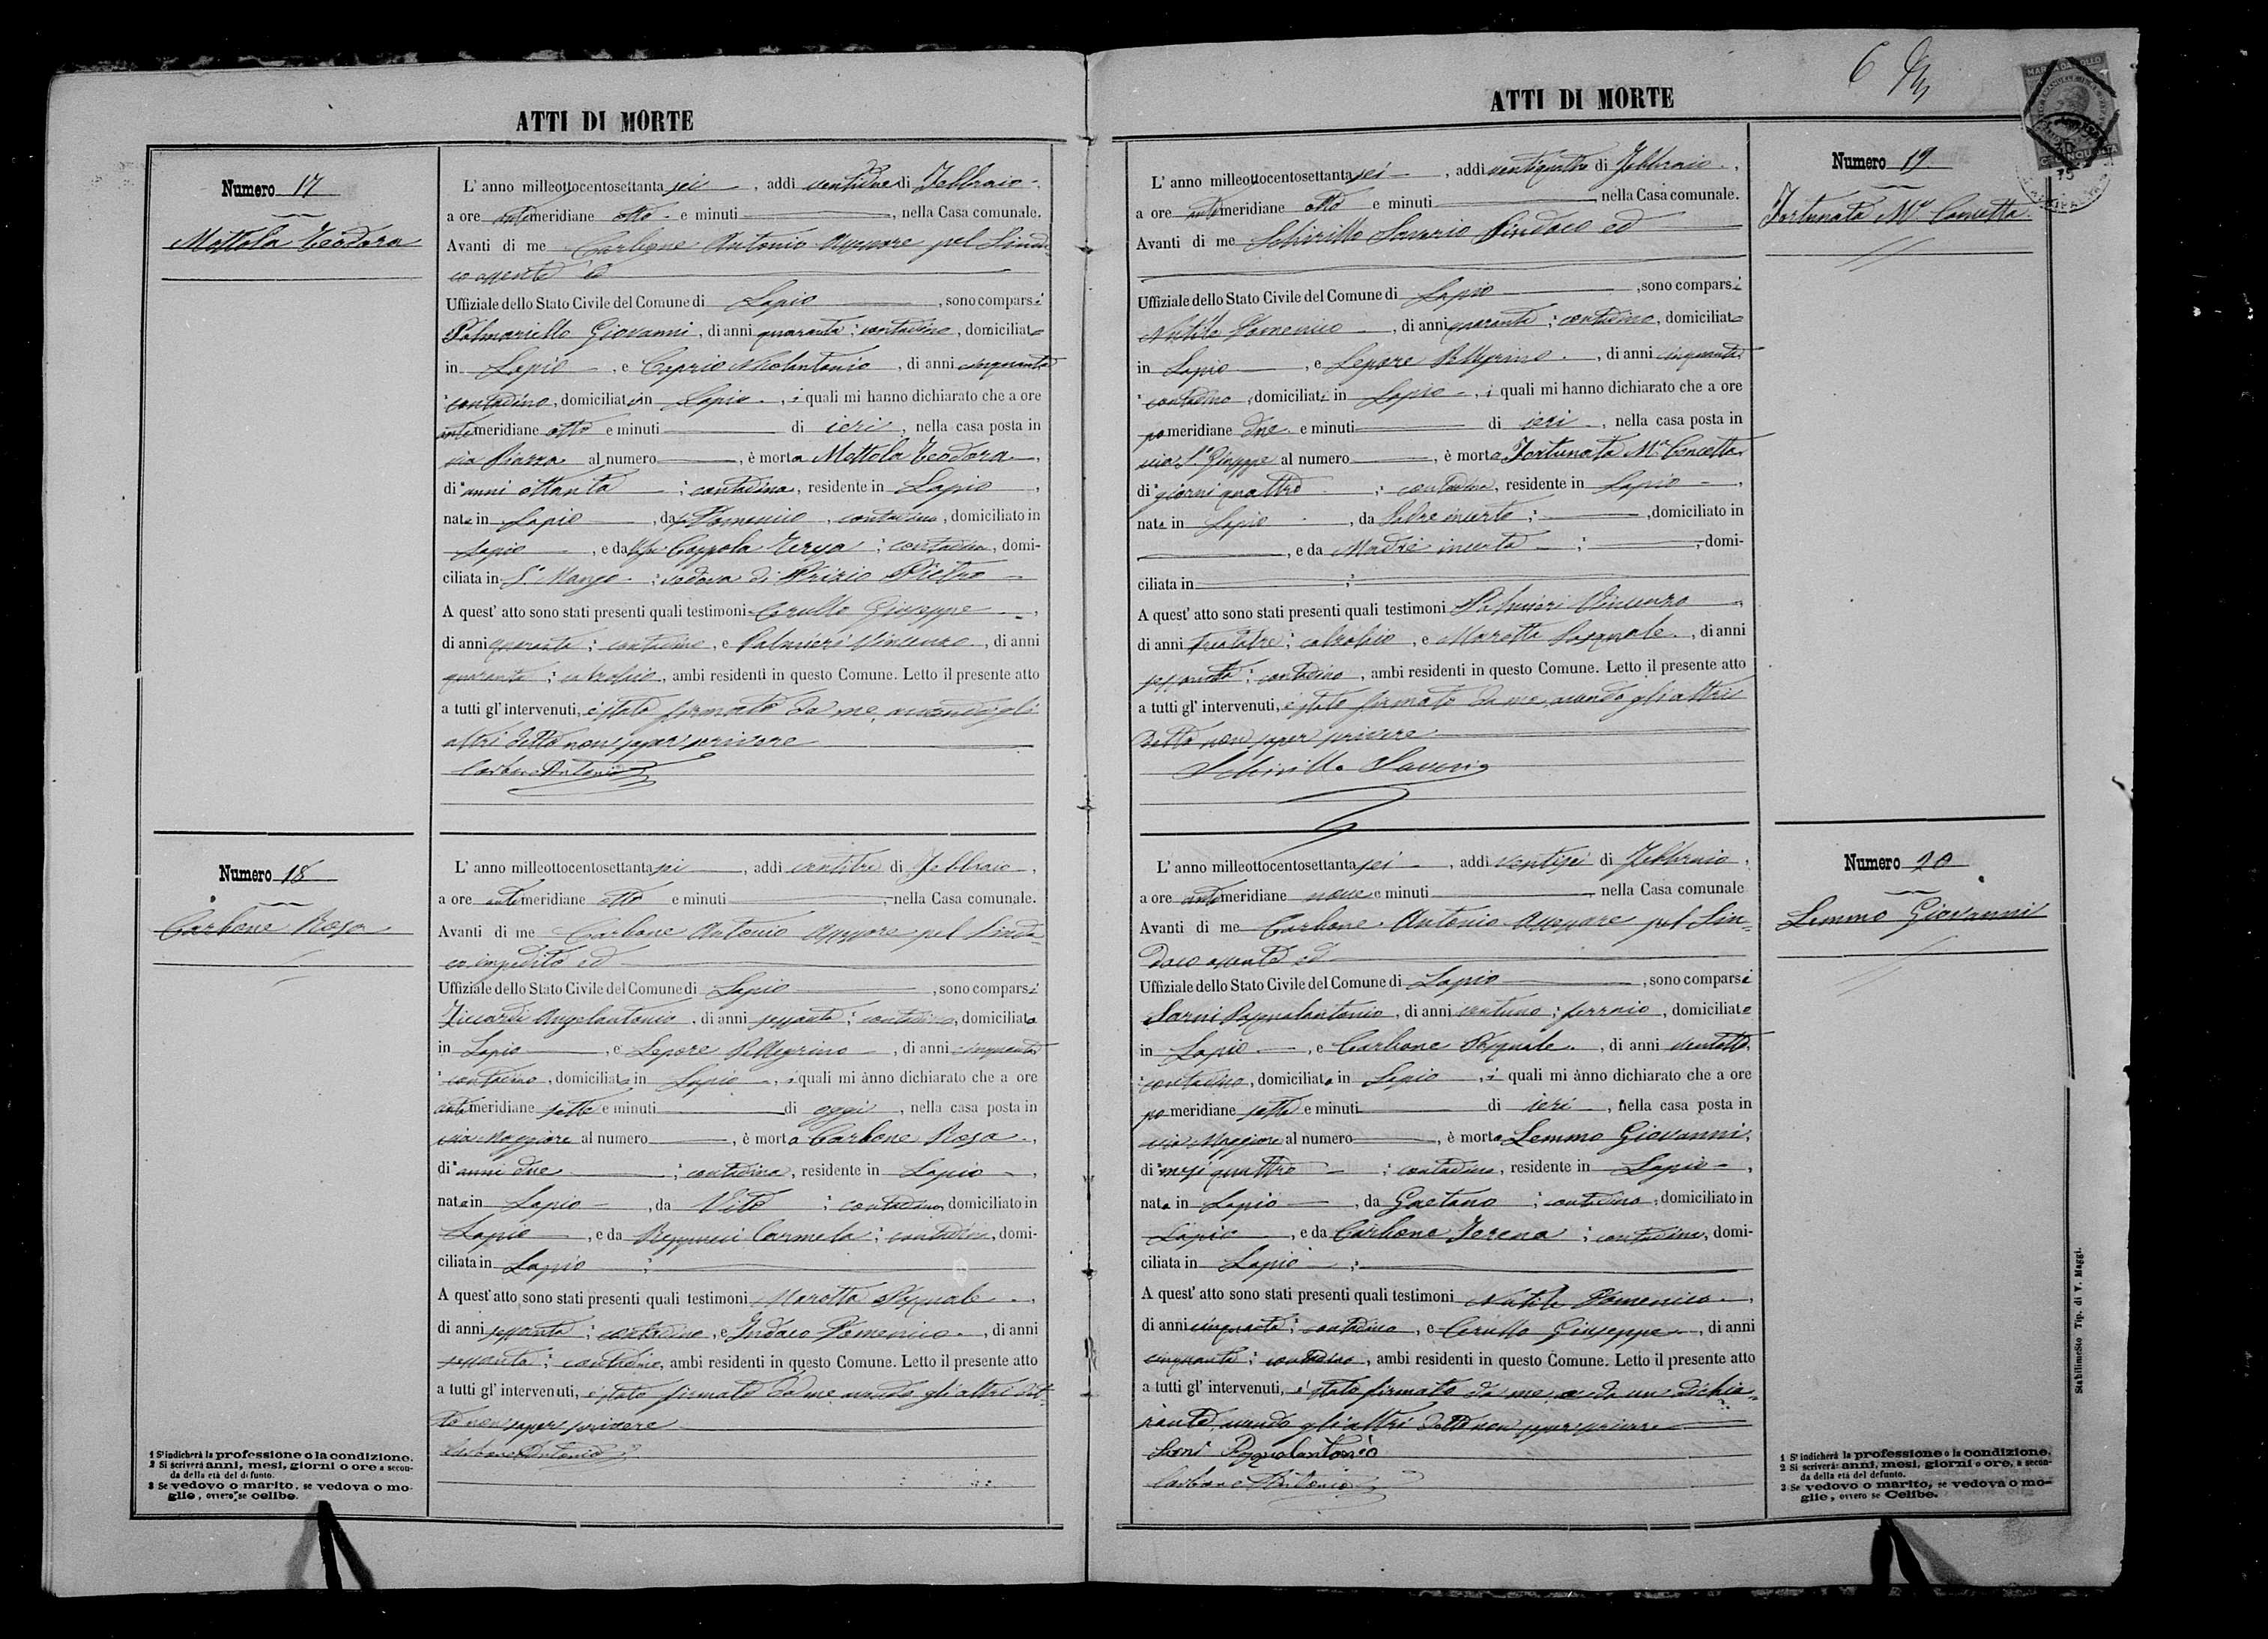 ATTI DI MORTE
Numero 17
Mottola Teodora
L' anno milleottocentosettanta sei, addì ventidue di Febbraio,
a ore antimeridiane otto e minuti, nella Casa comunale.
Avanti di me Carbone Antonio Assessore pel Sinda-
co assente ed
Uffiziale dello Stato Civile del Comune di Lapio, sono comparsi
Palmariello Giovanni, di anni quaranta; contadino, domiciliato
in Lapio, e Caprio Nicolantonio, di anni cinquanta
contadino, domiciliato in Lapio, i quali mi hanno dichiarato che a ore
antimeridiane otto e minuti di ieri, nella casa posta in
via Piazza al numero, è morta Mottola Teodora,
di anni ottanta; contadina, residente in Lapio,
nata in Lapio, da fu Domenico, contadino, domiciliato in
Lapio, e da fu Coppola; contadina, domi-
ciliata in S. Mango; vedova di Prizio Pietro
A quest' atto sono stati presenti quali testimoni Cerullo Giuseppe,
di anni quaranta; contadino, e Palmieri Vincenzo, di anni
quaranta; calzolaio, ambi residenti in questo Comune. Letto il presente atto
a tutti gl' intervenuti, è stato firmato da me, avendo gli
altri detto non saper scrivere
Carbone Antonio
Numero 18
Carbone Rosa
L' anno milleottocentosettanta sei, addì ventitre di Febbraio,
a ore antimeridiane otto e minuti, nella Casa comunale.
Avanti di me Carbone Antonio Assessore pel Sinda-
co impedito ed
Uffiziale dello Stato Civile del Comune di Lapio, sono comparsi
Ziccardi Angelantonio, di anni sessanta; contadino, domiciliato
in Lapio, e Lepore Pellegrino, di anni cinquanta
contadino, domiciliato in Lapio, i quali mi ànno dichiarato che a ore
antimeridiane sette e minuti di oggi, nella casa posta in
via Maggiore al numero, è morta Carbone Rosa,
di anni due; contadina, residente in Lapio,
nata in Lapio, da Vito; contadino, domiciliato in
Lapio, e da Carmela; contadina, domi-
ciliata in Lapio;
A quest' atto sono stati presenti quali testimoni Marotta Pasquale,
di anni sessanta; contadino, e Indaco Domenico, di anni
sessanta; contadino, ambi residenti in questo Comune. Letto il presente atto
a tutti gl' intervenuti, è stato firmato da me avendo gli altri det-
to non saper scrivere
Carbone Antonio
1 S' indicherà la professione o la condizione.
2 Si scriverà anni, mesi, giorni o ore a secon-
da della età del defunto.
3 Se vedovo o marito, se vedova o mo-
glie, ovvero se celibe.
6
ATTI DI MORTE
Numero 19
Fortunata Mª Concetta
L' anno milleottocentosettanta sei, addì ventiquattro di Febbraio,
a ore antimeridiane otto e minuti, nella Casa comunale.
Avanti di me Schirillo Saverio Sindaco ed
Uffiziale dello Stato Civile del Comune di Lapio, sono comparsi
Nutile Domenico, di anni quaranta; contadino, domiciliato
in Lapio, e Lepore Pellegrino, di anni cinquanta
contadino, domiciliato in Lapio, i quali mi hanno dichiarato che a ore
pomeridiane due e minuti di ieri, nella casa posta in
via S. Giuseppe al numero, è morta Fortunata Mª Concetta
di giorni quattro; contadina, residente in Lapio,
nata in Lapio, da Padre incerto;, domiciliato in
, e da Madre incerta;, domi-
ciliata in;
A quest' atto sono stati presenti quali testimoni Palmieri Vincenzo,
di anni trentatre; calzolaio, e Marotta Pasquale, di anni
sessanta; contadino, ambi residenti in questo Comune. Letto il presente atto
a tutti gl' intervenuti, è stato firmato da me, avendo gli altri
detto non saper scrivere
Schirillo Saverio
Numero 20
Lemmo Giovanni
L' anno milleottocentosettanta sei, addì ventisei di Febbraio,
a ore antimeridiane nove e minuti, nella Casa comunale
Avanti di me Carbone Antonio Assessore pel Sin-
daco assente ed
Uffiziale dello Stato Civile del Comune di Lapio, sono comparsi
Sarni Pasqualantonio, di anni ventuno; ferraio, domiciliato
in Lapio, e Carbone Pasquale, di anni ventotto,
contadino, domiciliato in Lapio, i quali mi ànno dichiarato che a ore
pomeridiane sette e minuti di ieri, nella casa posta in
via Maggiore al numero, è morto Lemmo Giovanni,
di mesi quattro; contadino, residente in Lapio,
nato in Lapio, da Gaetano; contadino, domiciliato in
Lapio, e da Carbone Serena; contadina, domi-
ciliata in Lapio;
A quest' atto sono stati presenti quali testimoni Nutile Domenico,
di anni cinquanta; contadino, e Cerullo Giuseppe, di anni
cinquanta; contadino, ambi residenti in questo Comune. Letto il presente atto
a tutti gl' intervenuti, è stato firmato da me e da un dichia-
rante, avendo gli altri detto non saper scrivere
Sarni Pasqualantonio
Carbone Antonio
1 S' indicherà la professione o la condizione.
2 Si scriverà: anni, mesi, giorni o ore, a secon-
da della età del defunto.
3 Se vedovo o marito, se vedova o mo-
glie, ovvero se Celibe.
Stabilimento Tip. di V. Maggi.